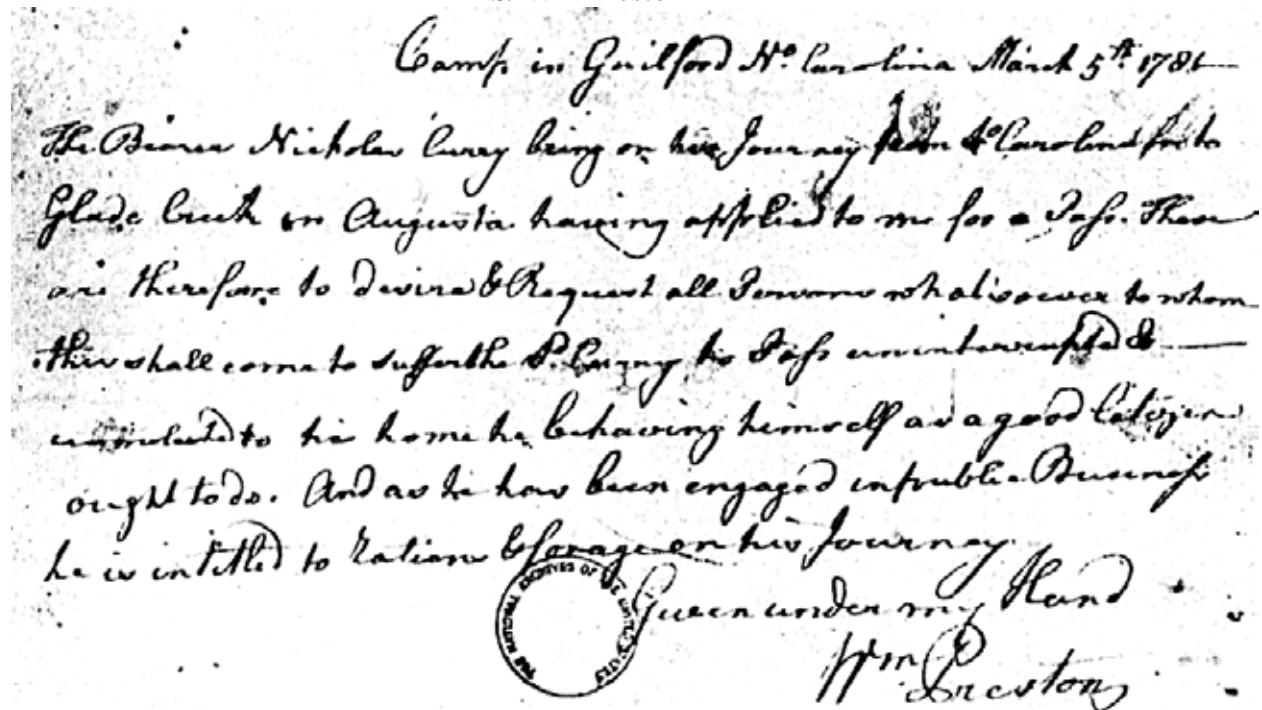 Camp in Guilford No. Carolina March 5th. 1781
The Bearer Nicholas Curry being on his Journey from So Carolina for to
Glade Creek in Augusta having applied to me for a Pass. These
are therefore to desire & Request all Persons whatsoever to whom
this shall come to suffer the sd. to Pass uninterrupted &
to his home he behaving himself as a good Citizen
ought to do. And as he has been engaged in public Business
he is intitled to Rations & forage on his Journey.
Given under my Hand
Wm. Preston
THE NATIONAL ARCHIVES OF THE UNITED STATES